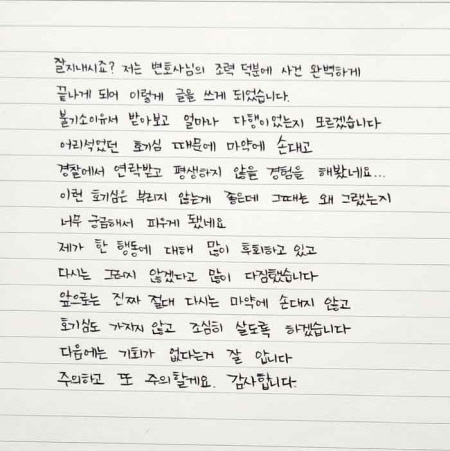 잘지내시죠? 저는 변호사님의 조력 덕분에 사건 완벽하게
끝나게 되어 이렇게 글을 쓰게 되었습니다.
불기소이유서 받아보고 얼마나 다행이었는지 모르겠습니다
어리석었던 호기심 때문에 마약에 손대고
경찰에서 연락받고 평생하지 않을 경험을 해봤네요...
이런 호기심은 부리지 않는게 좋은데 그때는 왜 그랬는지
너무 궁금해서 피우게 됐네요
제가 한 행동에 대해 많이 후회하고 있고
다시는 그러지 않겠다고 많이 다짐했습니다
앞으로는 진짜 절대 다시는 마약에 손대지 않고
호기심도 가지지 않고 조심히 살도록 하겠습니다
다음에는 기회가 없다는거 잘 압니다
주의하고 또 주의할게요. 감사합니다.